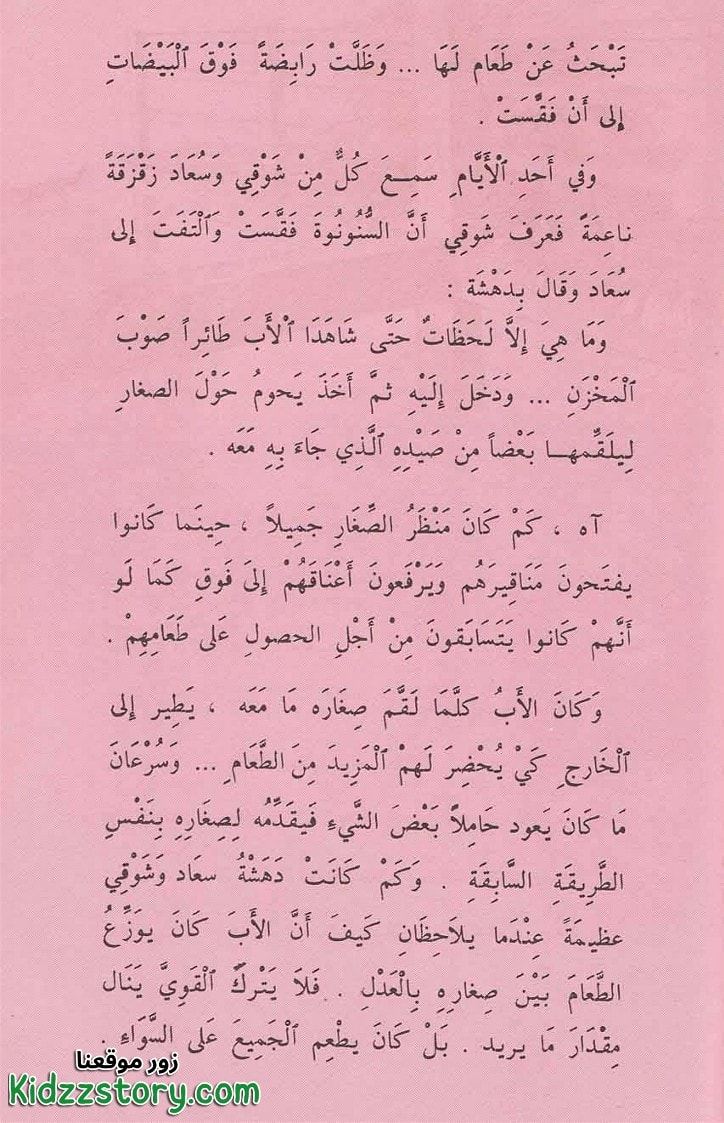 تَبْحَثُ عَنْ طَعَام لَهَا ... وَظَلَّتْ رَابِضَةً فَوْقَ ٱلْبَيْضَاتِ
إِلى أَنْ فَقَّسَتْ .
وَفي أَحَدِ ٱلْأَيَّامِ سَمِـعَ كُلٌّ مِنْ شَوْقِي وَسُعَادَ زَقْزَقَةً
ناعِمَةً فَعَرَفَ شَوقِي أَنَّ السُّنُونُوةَ فَقَّسَتْ وَٱلْتَفَتَ إِلى
سُعَادَ وَقَالَ بِدَهْشَة :
وَمَا هِيَ إِلاَّ لَحَظَاتٌ حَتَّى شَاهَدَا ٱلْأَبَ طَائِراً صَوْبَ
ٱلْمَخْزَنِ ... وَدَخَلَ إِلَيْهِ ثمَّ أَخَذَ يَحومُ حَوْلَ الصغارِ
لِيلَقِّمهـا بَعْضاً مِنْ صَيْدِهِ ٱلَّذِي جَاءَ بِهِ مَعَه .
آه ، كَمْ كَانَ مَنْظَرُ الصِّغَارِ جَمِيلاً ، حِينَما كَانوا
يفتَحونَ مَنَاقِيرَهُم وَيَرْفَعونَ أَعْنَاقَهُمْ إِلىَ فَوقِ كَمَا لَو
أَنَّهمْ كَانوا يَتَسَابَقونَ مِنْ أَجْلِ الحصولِ عَلى طَعَامِهِمْ .
وَكَانَ الأَبُ كلَّمَا لَقَّمَ صِغَارَه مَا مَعَه ، يَطِير إِلى
ٱلْخَارجِ كَيْ يُحْضِرَ لَهمْ ٱلْمَزِيدَ مِنَ الطَّعَامِ ... وَسُرْعَانَ
مَا كَانَ يَعود حَامِلاً بَعْضَ الشَّيءِ فَيقَدِّمُه لِصِغَارِهِ بِنَفْسِ
الطَّرِيقَةِ السَّابِقَةِ . وَكَمْ كَانَتْ دَهَشْةُ سعَاد وَشَوْقِي
عظِيمَةً عِنْدَما يلاَحِظَانِ كَيفَ أَنَّ الأَبَ كَانَ يوَزِّعُ
الطَّعَامَ بَيْنَ صِغارِهِ بِالْعَدْلِ . فَلاَ يَتْركُ ٱلْقَوِيَّ يَنَال
مِقْدَارَ مَا يريد . بَلْ كَانَ يطْعِم ٱلْجَمِيعَ عَلى السَّوَاءِ .
زور موقعنا
Kidzzstory.com